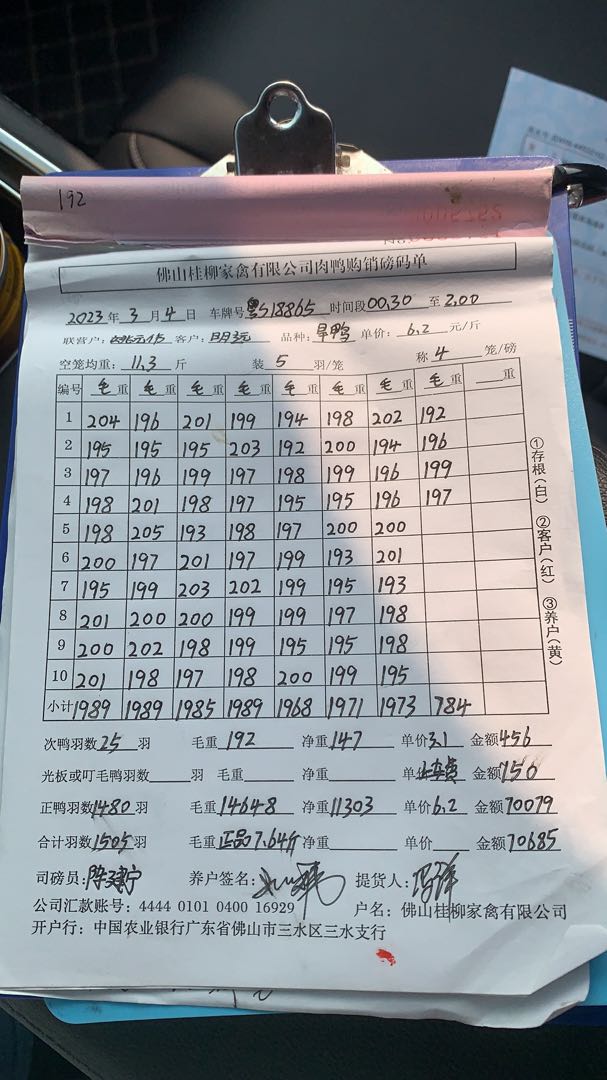 192
佛山桂柳家禽有限公司肉鸭购销磅码单
2023年 3月 4日 车牌号 粤S18865 时间段 00.30 至 2.00
联营户: 客户: 明远 品种: 旱鸭 单价: 6.2 元/斤
空笼均重: 11.3 斤 装 5 羽/笼 称 4 笼/磅
编号 毛重 毛重 毛重 毛重 毛重 毛重 毛重 毛重 重
1 204 196 201 199 194 198 202 192
2 195 195 195 203 192 200 194 196
3 197 196 199 197 198 199 196 199
4 198 201 198 197 195 195 196 197
5 198 205 193 198 197 200 200
6 200 197 201 197 199 193 201
7 195 199 203 202 199 195 193
8 201 200 200 199 199 197 198
9 200 202 198 199 195 195 198
10 201 198 197 198 200 199 195
小计 1989 1989 1985 1989 1968 1971 1973 784
①存根(白) ②客户(红) ③养户(黄)
次鸭羽数 25 羽 毛重 192 净重 147 单价 3.1 金额 456
光板或叮毛鸭羽数 羽 毛重 净重 单 金额 150
正鸭羽数 1480 羽 毛重 14648 净重 11303 单价 6.2 金额 70079
合计羽数 1505 羽 毛重 正品7.64斤 净重 单价 金额 70685
司磅员: 养户签名: 提货人:
公司汇款账号: 4444 0101 0400 16929 户名: 佛山桂柳家禽有限公司
开户行: 中国农业银行广东省佛山市三水区三水支行